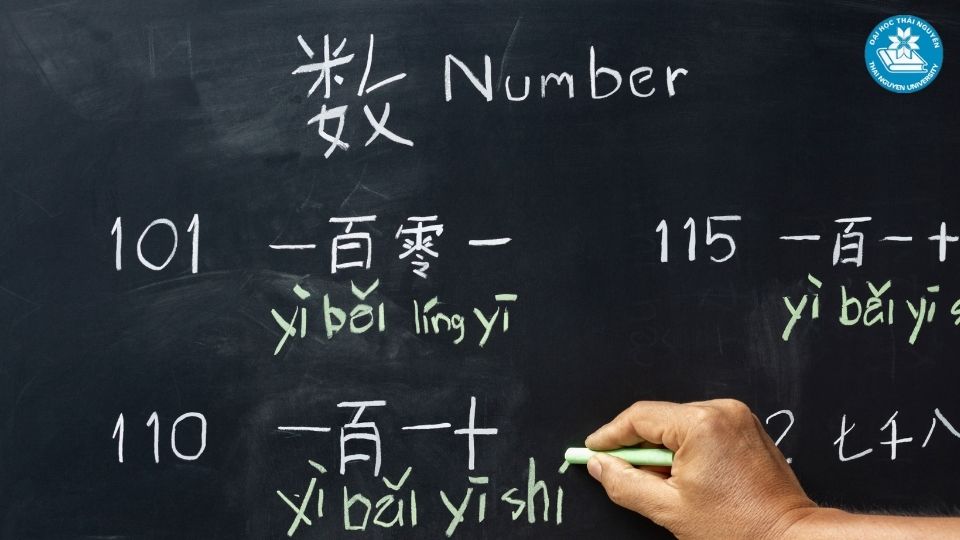 数 Number
101 一百零一
yì bǎi líng yī
115 一百一十
yì bǎi yī s
110 一百一十
yì bǎi yī shí
2 七千八
ĐẠI HỌC THÁI NGUYÊN
THAI NGUYEN UNIVERSITY